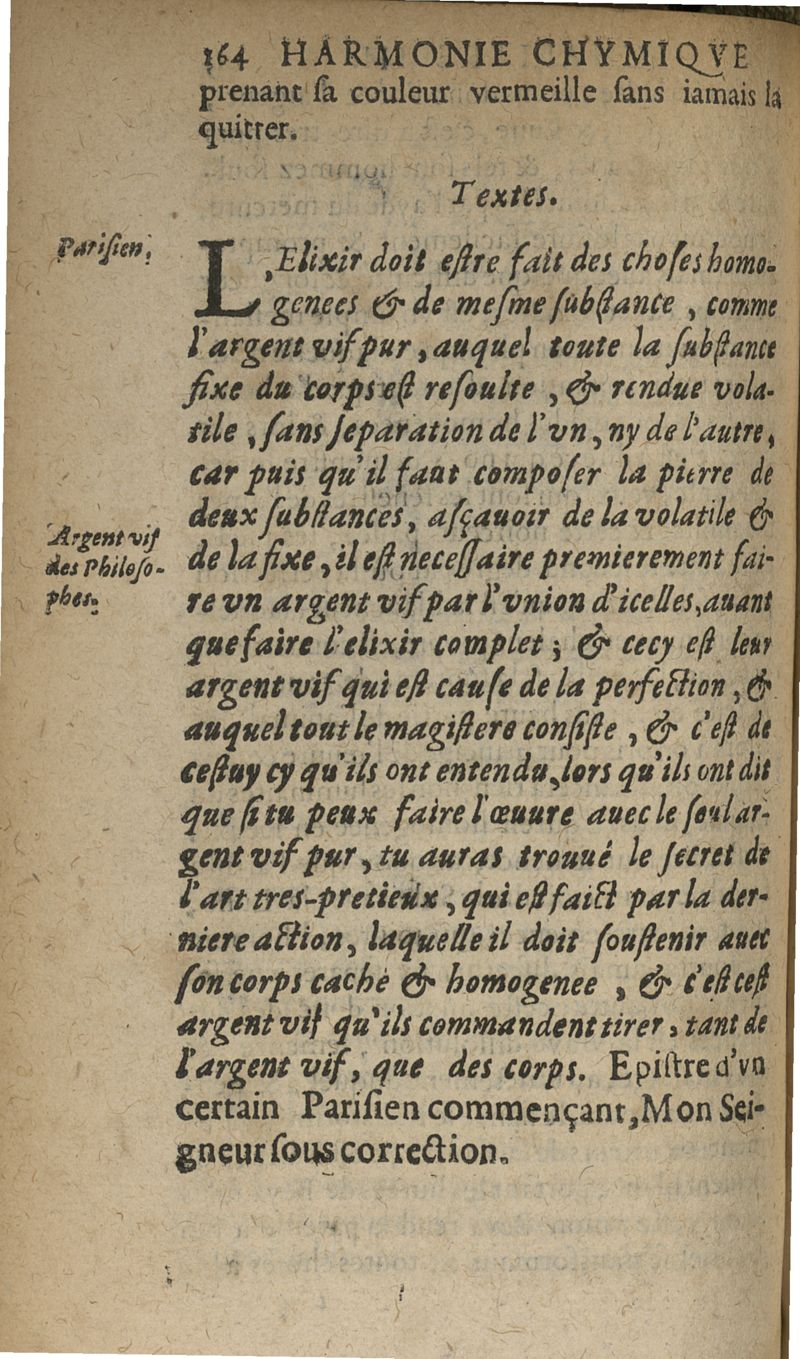 164 HARMONIE CHYMIQVE
prenant ſa couleur vermeille ſans iamais la
quitter.
Textes.
Pariſien.
L'Elixir doit eſtre fait des choſes homo-
genees & de meſme ſubſtance , comme
l'argent vif pur , auquel toute la ſubſtance
fixe du corps eſt reſoulte , & rendue vola-
tile , ſans ſeparation de l'vn , ny de l'autre,
car puis qu'il faut compoſer la pierre de
deux ſubſtances, aſçauoir de la volatile &
Argent vif
des Philoſo-
phes.
de la fixe , il eſt neceſſaire premierement fai-
re vn argent vif par l'vnion d'icelles, auant
que faire l'elixir complet ; & cecy eſt leur
argent vif qui eſt cauſe de la perfection , &
auquel tout le magiſtere conſiſte , & c'eſt de
ceſtuy cy qu'ils ont entendu, lors qu'ils ont dit
que ſi tu peux faire l'œuure auec le ſeul ar-
gent vif pur , tu auras trouué le ſecret de
l'art tres-pretieux , qui eſt faict par la der-
niere action, laquelle il doit ſouſtenir auec
ſon corps caché & homogenee , & c'eſt ceſt
argent vif qu'ils commandent tirer , tant de
l'argent vif, que des corps. Epiſtre d'vn
certain Pariſien commençant, Mon Sei-
gneur ſous correction.